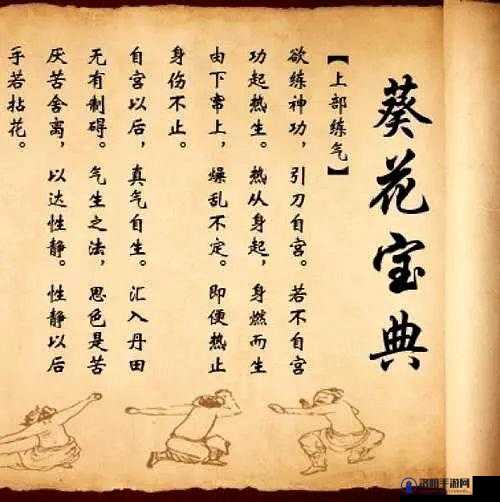 葵花宝典
【上部练气】
欲练神功，引刀自宫。若不自宫
功起热生。热从身起，身燃而生
由下窜上，燥乱不定。即便热止
身伤不止。
自宫以后，真气自生。汇入丹田
无有制碍。气生之法，思色是苦
厌苦舍离，以达性静。性静以后
手若拈花。
洛阳手游网